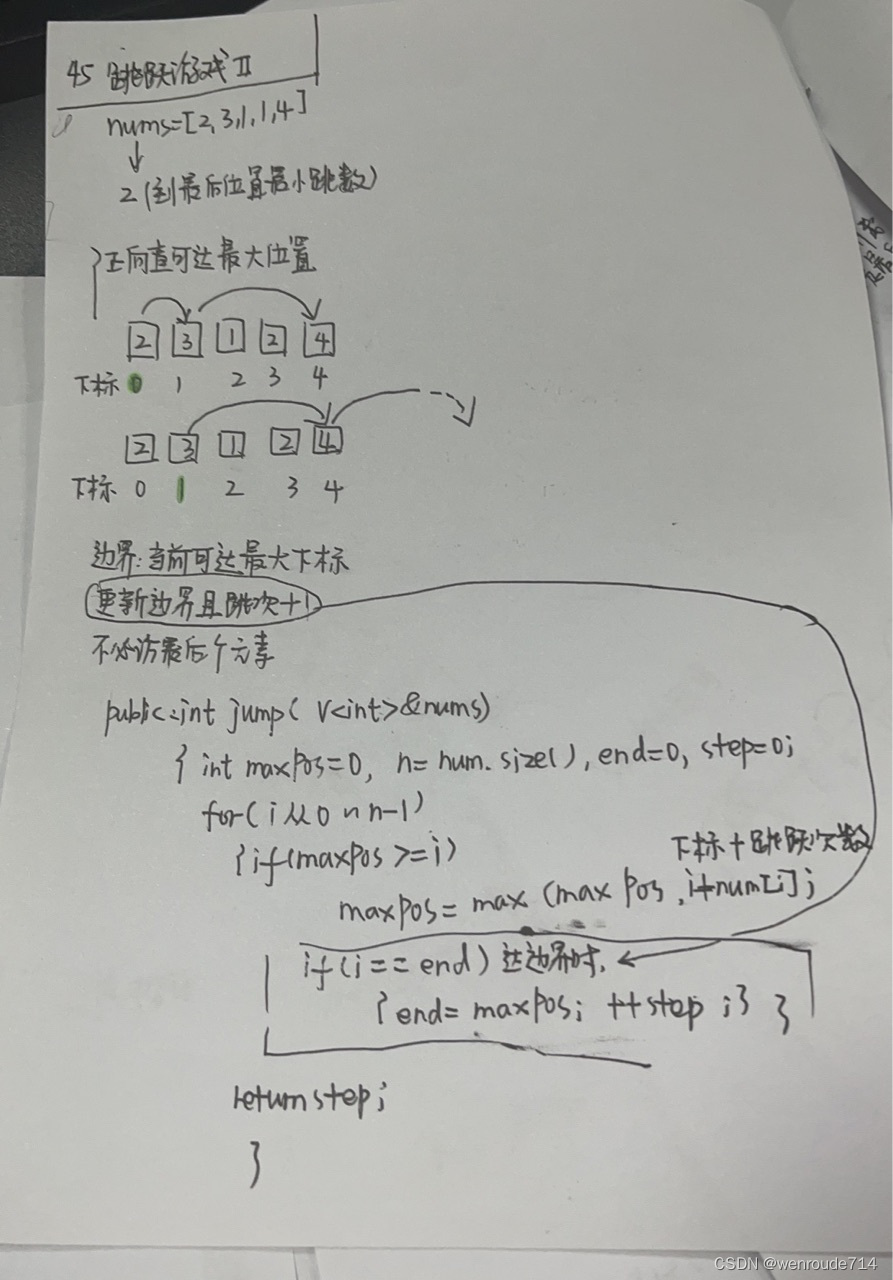 45 跳跃游戏 II
nums=[2,3,1,1,4]
↓
2 (到最后位置最小跳数)
正向查可达最大位置
2 3 1 2 4
下标 0 1 2 3 4
2 3 1 2 4
下标 0 1 2 3 4
边界:当前可达最大下标
更新边界且跳次+1
不必访最后个元素
public:int jump( v<int>&nums)
{ int maxPos=0, n= num.size(), end=0, step=0;
for( i 从 0 ~ n-1)
{ if(maxPos >=i)
下标+跳跃次数
maxPos= max (max Pos ,i+num[i];
if(i == end) 达边界时,
{end= maxPos; ++step ;} }
return step;
}
CSDN @wenroude714